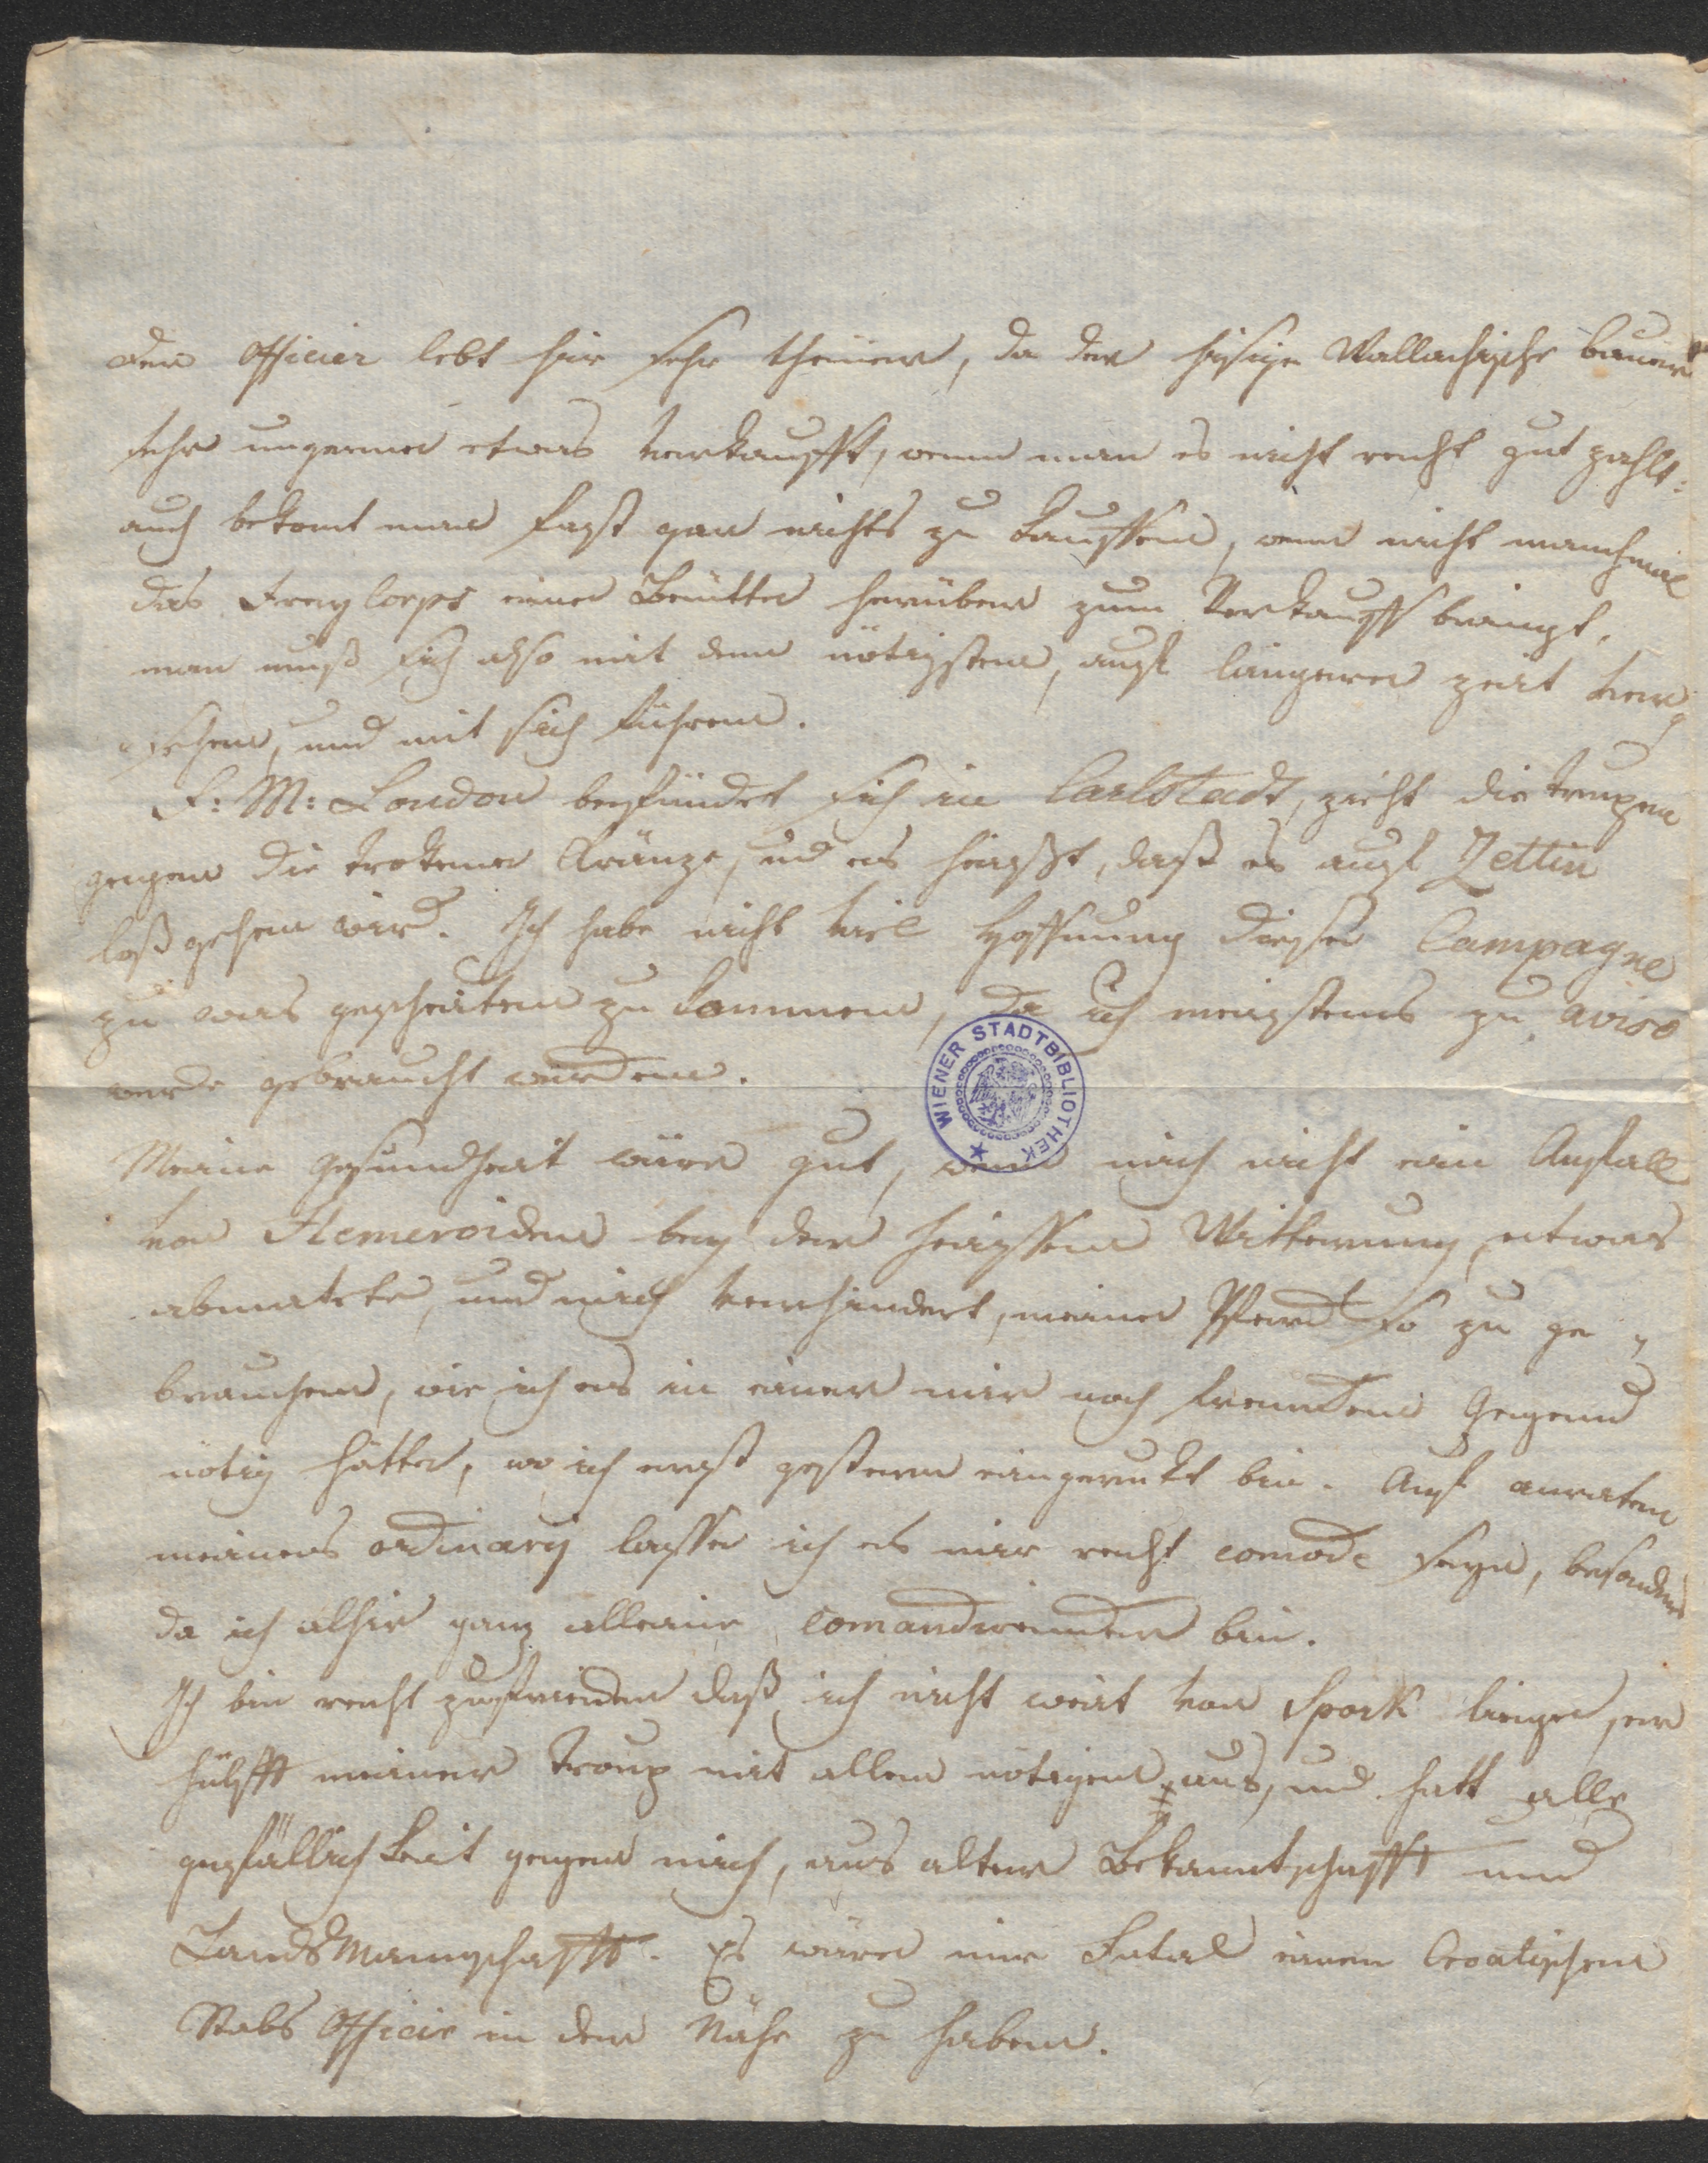 der Officier lebt hir sehr theüer, da der hisige Wallachische bauer
sehr ungerne etwas verkaufft, wenn man es nicht recht gut zahlt:
auch bekomt man fast gar nichts zu kauffen, wenn nicht manchmal
das Freycorps eine Beütte herüber zum Verkauff bringt,
man muß sich also mit dem nötigsten, auf längere zeit ver„
„sehen, und mit sich führen.
F: M: Loudon befündet sich in Carlstadt, zieht die trupen
gegen die trokene Gränze, und es heist, daß es auf Zettin
loß gehen wird. Ich habe nicht viel Hoffnung diese Campagne
zu was gescheiten zu kommen, da ich meistens zu aviso
werde gebraucht werden.
WIENER STADTBIBLIOTHEK
Meine gesundheit wäre gut, wenn mich nicht ein Anfall
von Hemeroiden bey der heissen Witterung, etwas
abmatete, und mich verhindert, meine Pferd so zu ge„
brauchen, wie ich es in einer mir noch fremden Gegend
nötig hätte, wo ich erst gestern eingerukt bin. Auf anraten
meines ordinarij lasse ich es mir recht comode seyn, besonders
da ich alhir ganz alleine comandirender bin.
Ich bin recht zufrieden daß ich nicht weit von Spork liege, er
hülfft meiner troup mit allen nötigen aus, und hatt alle
gefällichkeit gegen mich, aus alter Bekanntschafft und
Landsmannschafft. Es wäre mir Fatal einen Croatischen
Stabs Officir in der Nähe zu haben.